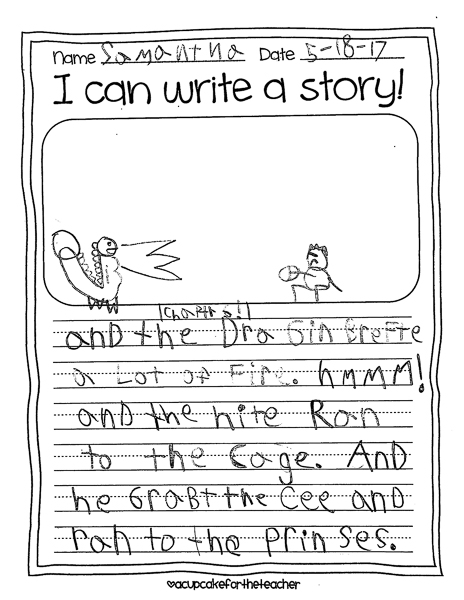 Name Samantha Date 5-18-17
I can write a story!
Chaptr 5!
and the Dra Gin Breffte
a Lot of Fire. hmmm!
and the nite Ran
to the Cage. And
he GraBt the Cee and
ran to the prinses.
♥acupcakefortheteacher